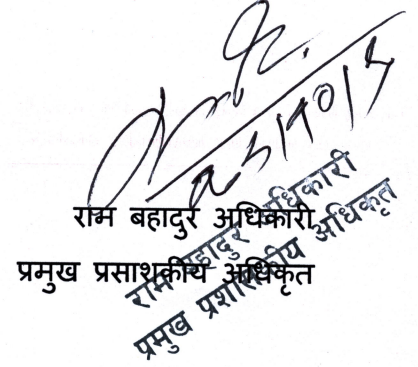 राम बहादुर अधिकारी
प्रमुख प्रसाशकीय अधिकृत
राम बहादुर अधिकारी
प्रमुख प्रशासकीय अधिकृत